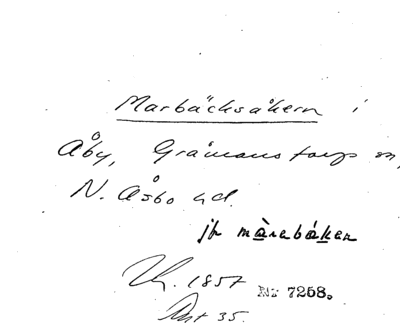 Marbäcksåkern i
Åby, Gråmanstorps sn,
N. Åsbo hd.
jfr màrabákan
1857 Nr 7258.
Ant 35.